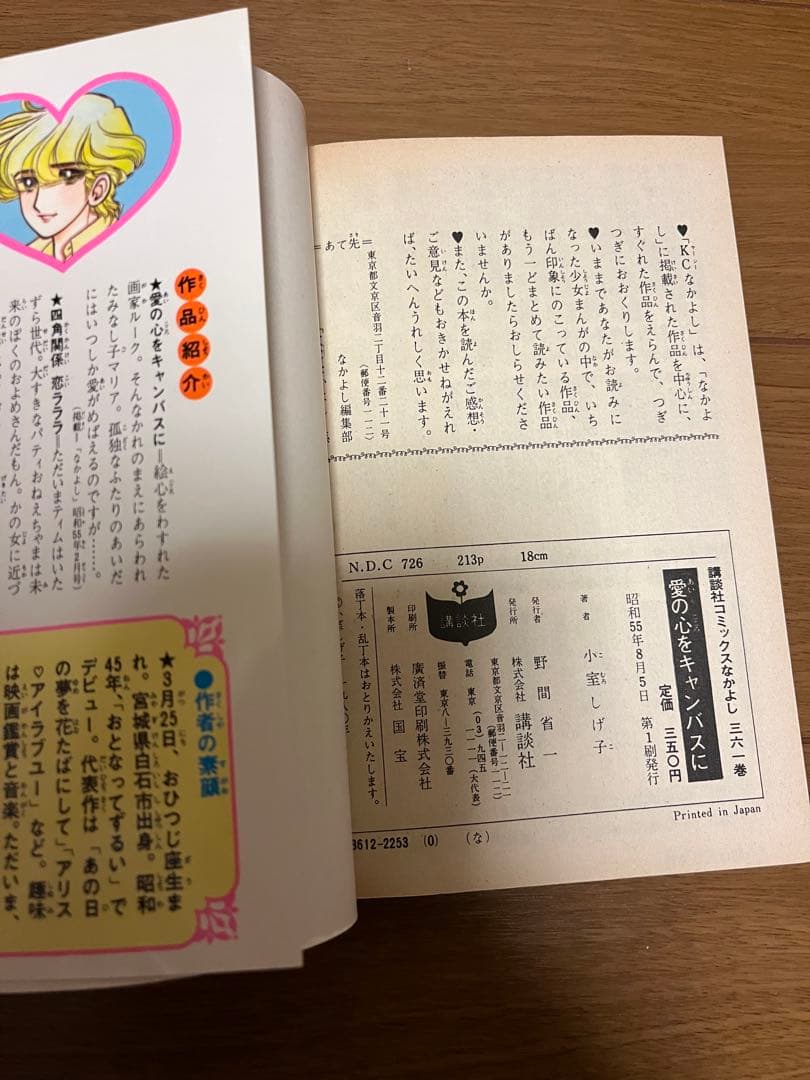 作品紹介
★愛の心をキャンバスに＝絵心をわすれた
画家ルーク。そんなかれのまえにあらわれ
たみなし子マリア。孤独なふたりのあいだ
にはいつしか愛がめばえるのですが……。
（掲載＝「なかよし」昭和55年2月号）
★四角関係 恋ラララ＝ただいまティムはいた
ずら世代。大すきなパティおねえちゃまは未
来のぼくのおよめさんだもん。かの女に近づ
●作者の素顔
★3月25日、おひつじ座生ま
れ。宮城県白石市出身。昭和
45年、「おとなってずるい」で
デビュー。代表作は「あの日
の夢を花たばにして」「アリス
♡アイラブユー」など。趣味
は映画鑑賞と音楽。ただいま、
♥「KCなかよし」は、「なかよ
し」に掲載された作品を中心に、
すぐれた作品をえらんで、つぎ
つぎにおおくりします。
♥いままであなたがお読みに
なった少女まんがの中で、いち
ばん印象にのこっている作品、
もう一どまとめて読みたい作品
がありましたらおしらせくださ
いませんか。
♥また、この本を読んだご感想・
ご意見などもおきかせねがえれ
ば、たいへんうれしく思います。
＝あて先＝
東京都文京区音羽二丁目十二番二十一号
（郵便番号一一二）
なかよし編集部
N.D.C 726 213p 18cm
講談社コミックスなかよし 三六一巻
愛の心をキャンバスに
定価 三五〇円
昭和55年8月5日 第1刷発行
著者 小室しげ子
発行者 野間省一
発行所 株式会社 講談社
東京都文京区音羽二―一二―二一
（郵便番号一一二）
電話 東京（03）九四五
一一一一（大代表）
振替 東京八―三九三〇番
講談社
印刷所 廣済堂印刷株式会社
製本所 株式会社 国宝
落丁本・乱丁本はおとりかえいたします。
Printed in Japan
8612-2253 (0) （な）